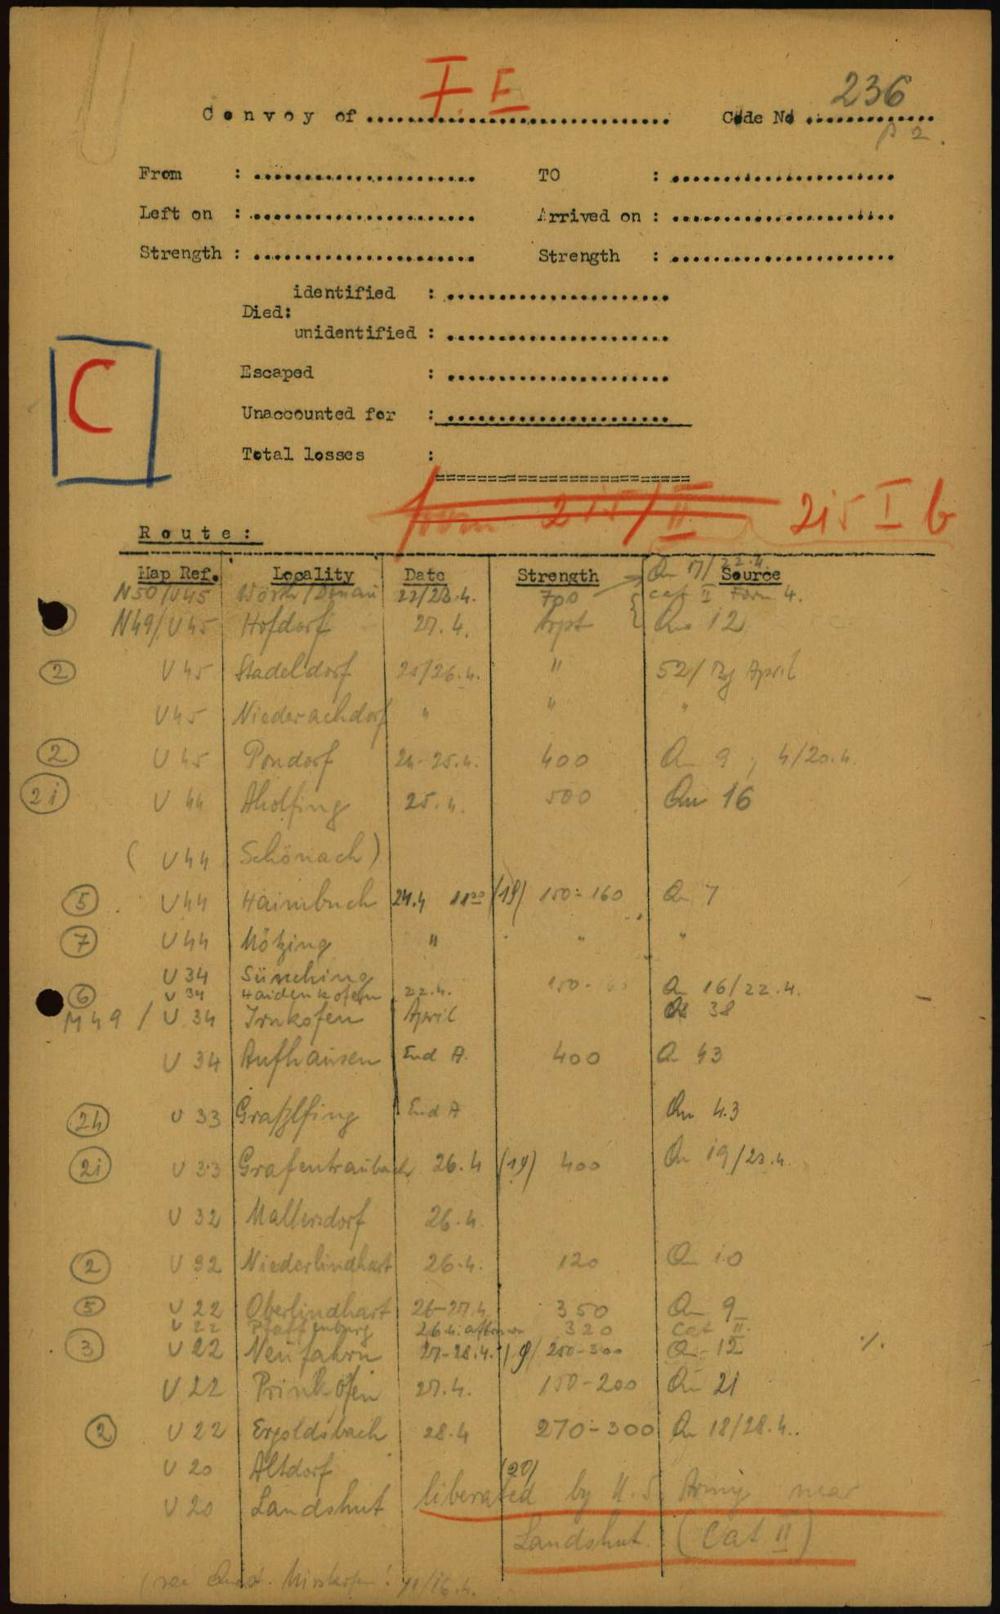 Convoy of F. E Code No 236
p 2.
From : TO :
Left on : Arrived on :
Strength : Strength :
identified :
Died:
unidentified :
Escaped :
C
Unaccounted for :
Total losses :
from 215/II 215 I b
Route:
Map Ref. Locality Date Strength Source
17/22.4.
N50/U45 Wörth/Donau 22/23.4. 700 cat II Form 4.
N49/U45 Hofdorf 27.4. rpt 12
② U45 Stadeldorf 25/26.4. " 52/ April
U45 Niederachdorf " " "
② U45 Pondorf 24-25.4. 400 Qu 9, 4/20.4.
(2i) U44 Aholfing 25.4. 500 Qu 16
( U44 Schönach)
⑤ U44 Haimbuch 24.4 11⁰⁰ (19) 150-160 Qu 7
⑦ U44 Mötzing " " "
U34 Sünching
⑥ U34 Haidenkofen 22.4. 150- Qu 16/22.4.
M49/U34 Irnkofen April Qu 38
U34 Aufhausen End A. 400 Qu 43
(2h) U33 Graßlfing End A Qu 43
(2i) U33 Grafentraubach 26.4 (19) 400 Qu 19/23.4.
U32 Mallersdorf 26.4.
② U32 Niederlindhart 26.4. 120 Qu 10
⑤ U22 Oberlindhart 26-27.4. 350 Qu 9
U22 Pfaffenberg 26.4. afternoon 320 Cat II.
③ U22 Neufahrn 27-28.4. 19/ 250-300 Qu 12 %.
U22 Prinkofen 27.4. 150-200 Qu 21
② U22 Ergoldsbach 28.4 270-300 Qu 18/28.4..
U20 Altdorf (20)
U20 Landshut liberated by U.S. Army near
Landshut. (Cat II)
(see 41/16.4.